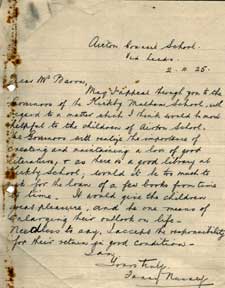 Airton Council School.
Via Leeds.
2. 11. 25.
Dear Mr Baron,
May I appeal through you to the
Governors of the Kirkby Malham School, with
regard to a matter which I think would be most
helpful to the children of Airton School.
The Governors will realize the importance of
creating and maintaining a love of good
literature, & as there is a good library at
Kirkby School, would it be too much to
ask for the loan of a few books from time
to time. It would give the children
great pleasure, and be one means of
enlarging their outlook on life.
Needless to say, I accept the responsibility
for their return in good condition.
I am
Yours truly,